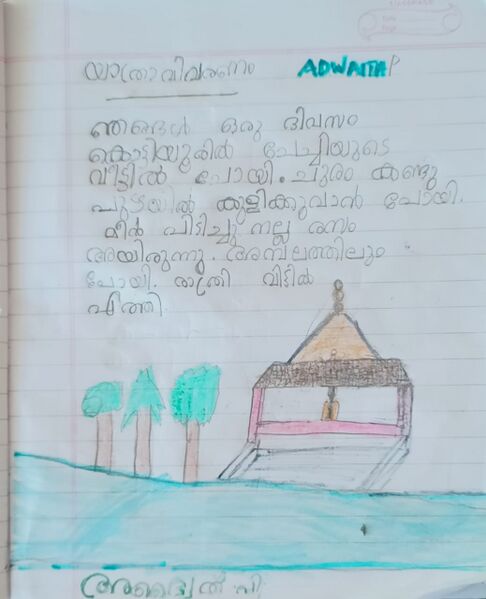 യാത്രാവിവരണം ADWAITH P
ഞങ്ങൾ ഒരു ദിവസം
കൊട്ടിയൂരിൽ ചേച്ചിയുടെ
വീട്ടിൽ പോയി. ചുരം കണ്ടു
പുഴയിൽ കുളിക്കുവാൻ പോയി.
മീൻ പിടിച്ചു നല്ല രസം
അയിരുന്നു. അമ്പലത്തിലും
പോയി. രാത്രി വിട്ടിൽ
എത്തി
അദ്വൈത് പി